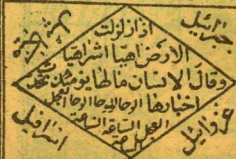 جبرائيل
اذا زلزلت
الارض اهيا اشراهيا
وقال الانسان مالها يومئذ تحدث
اخبارها الوحا الوحا الوحا العجل
العجل الساعة الساعة
عزرائيل
اسرافيل